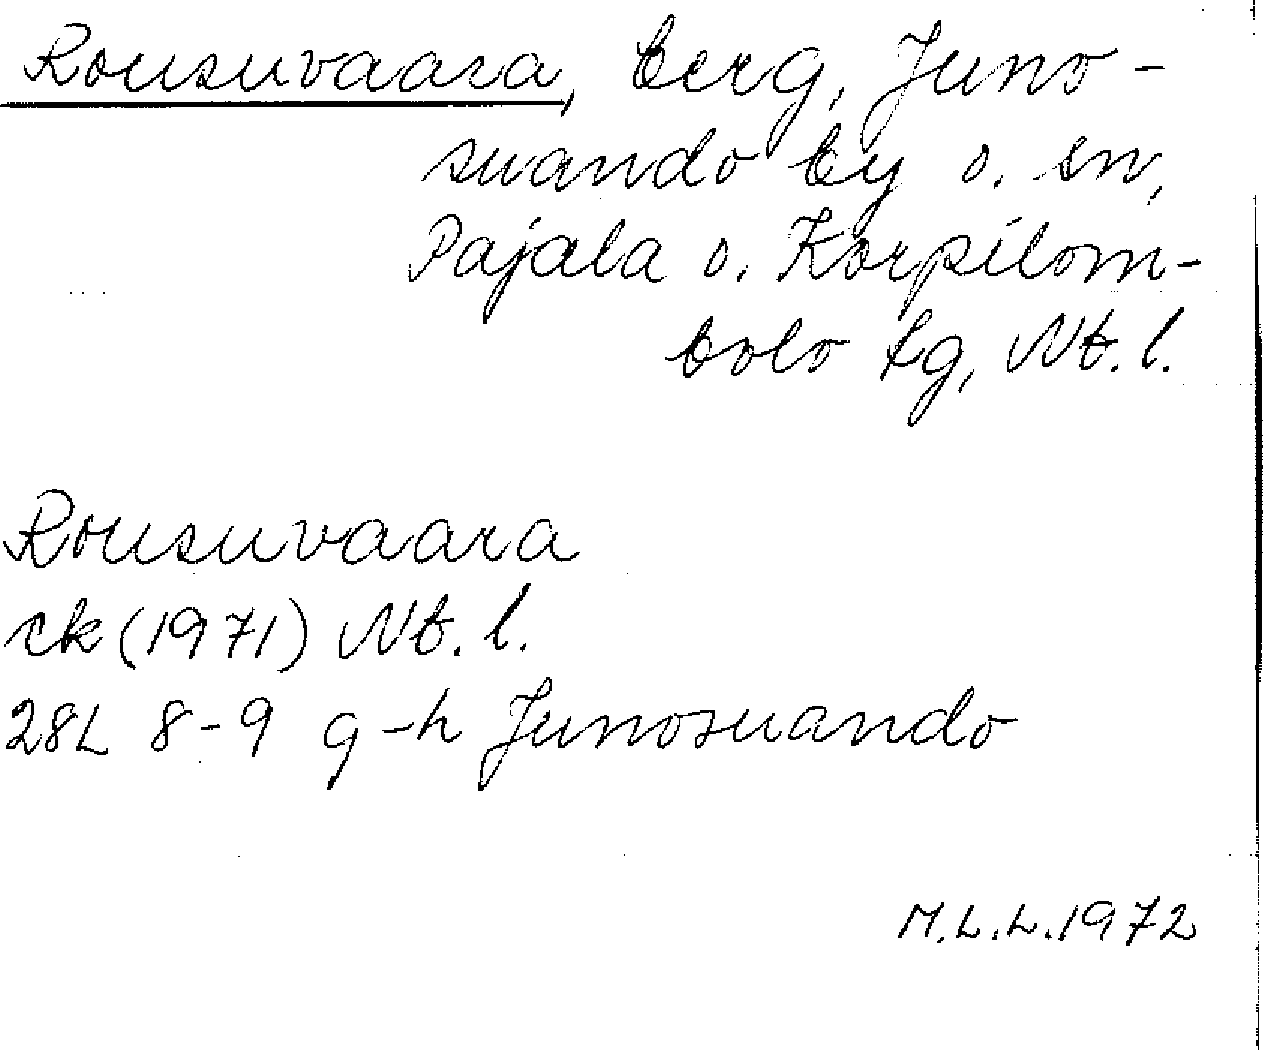 Rousuvaara, berg, Juno-
suando by o. sn,
Pajala o. Korpilom-
bolo tg, Nb. l.
Rousuvaara
ek (1971) Nb. l.
28L 8-9 g-h Junosuando
M.L.L. 1972